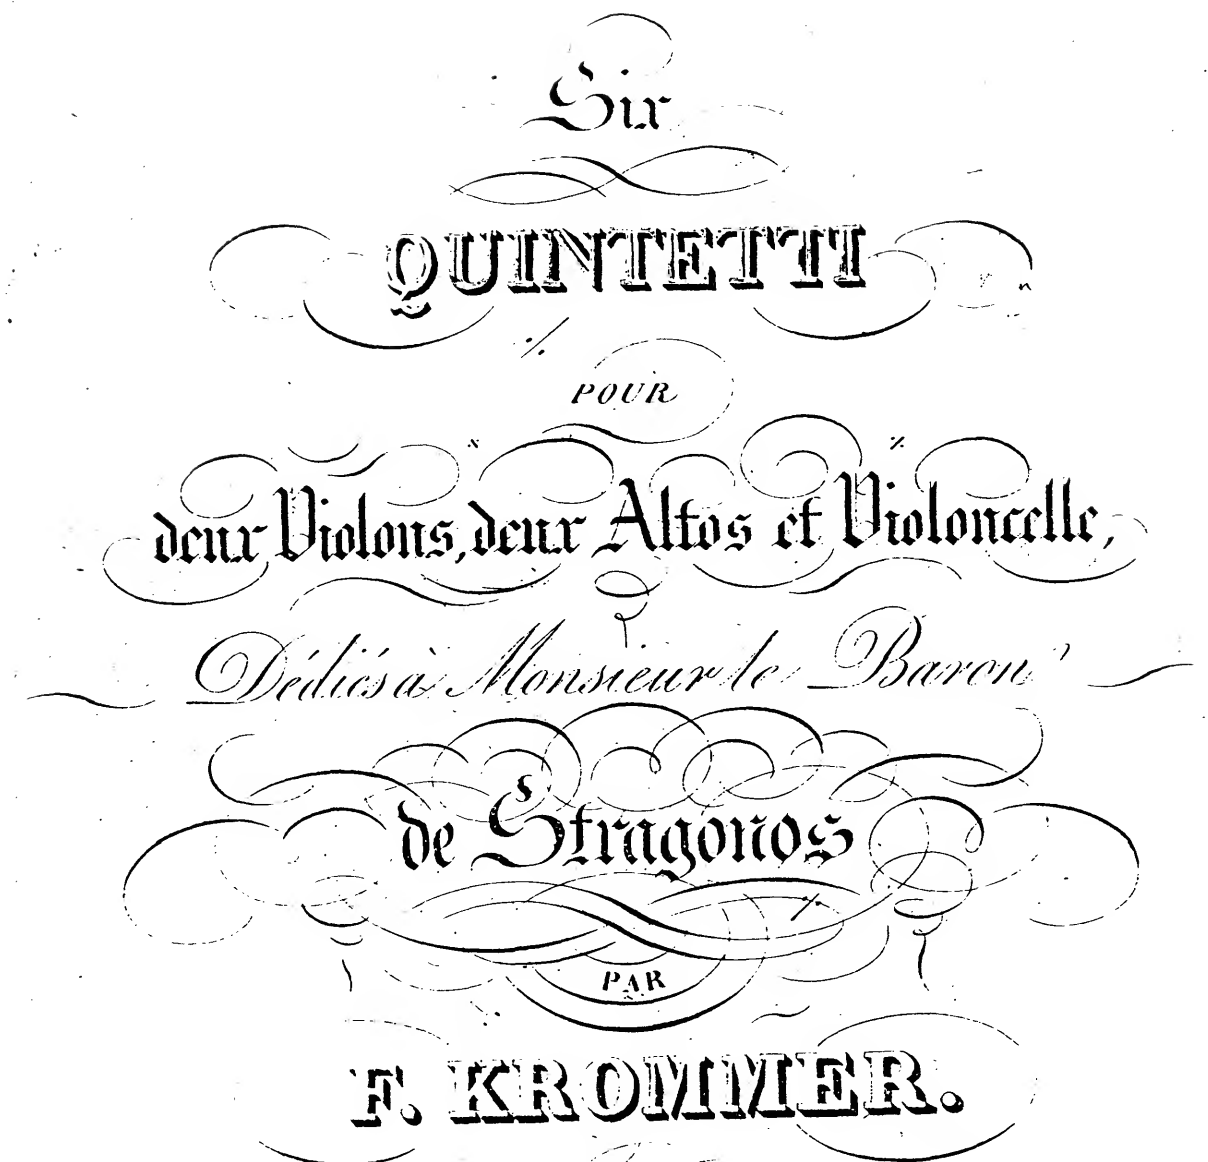 Six
QUINTETTI
POUR
deux Violons, deux Altos et Violoncelle,
Dédiés à Monsieur le Baron
de Stragonos
PAR
F. KROMMER.